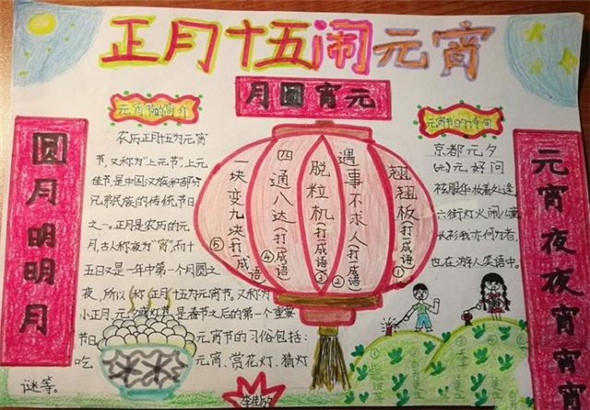 正月十五闹元宵
月圆宵元
元宵节的简介
农历正月十五为元宵
节,又称为"上元节",上元
佳节是中国汉族和部分
兄弟民族的传统节日
之一。正月是农历的元
月,古人称夜为"宵",而十
五日又是一年中第一个月圆之
夜,所以称正月十五为元宵节。又称为
小正月、元夕或灯节,是春节之后的第一个重要
节日 元宵节的习俗包括:
吃 元宵、赏花灯、猜灯
谜等。
圆月明明月
翘翘板(打一成语)①
遇事不求人(打一成语)②
脱粒机(打一成语)③
四通八达(打一成语)④
一块变九块(打一成语)⑤
元宵节的诗句
京都元夕
(元)元好问
袨服华妆着处逢
六街灯火闹儿童
长衫我亦何为者,
也在游人笑语中。
元宵夜夜宵宵